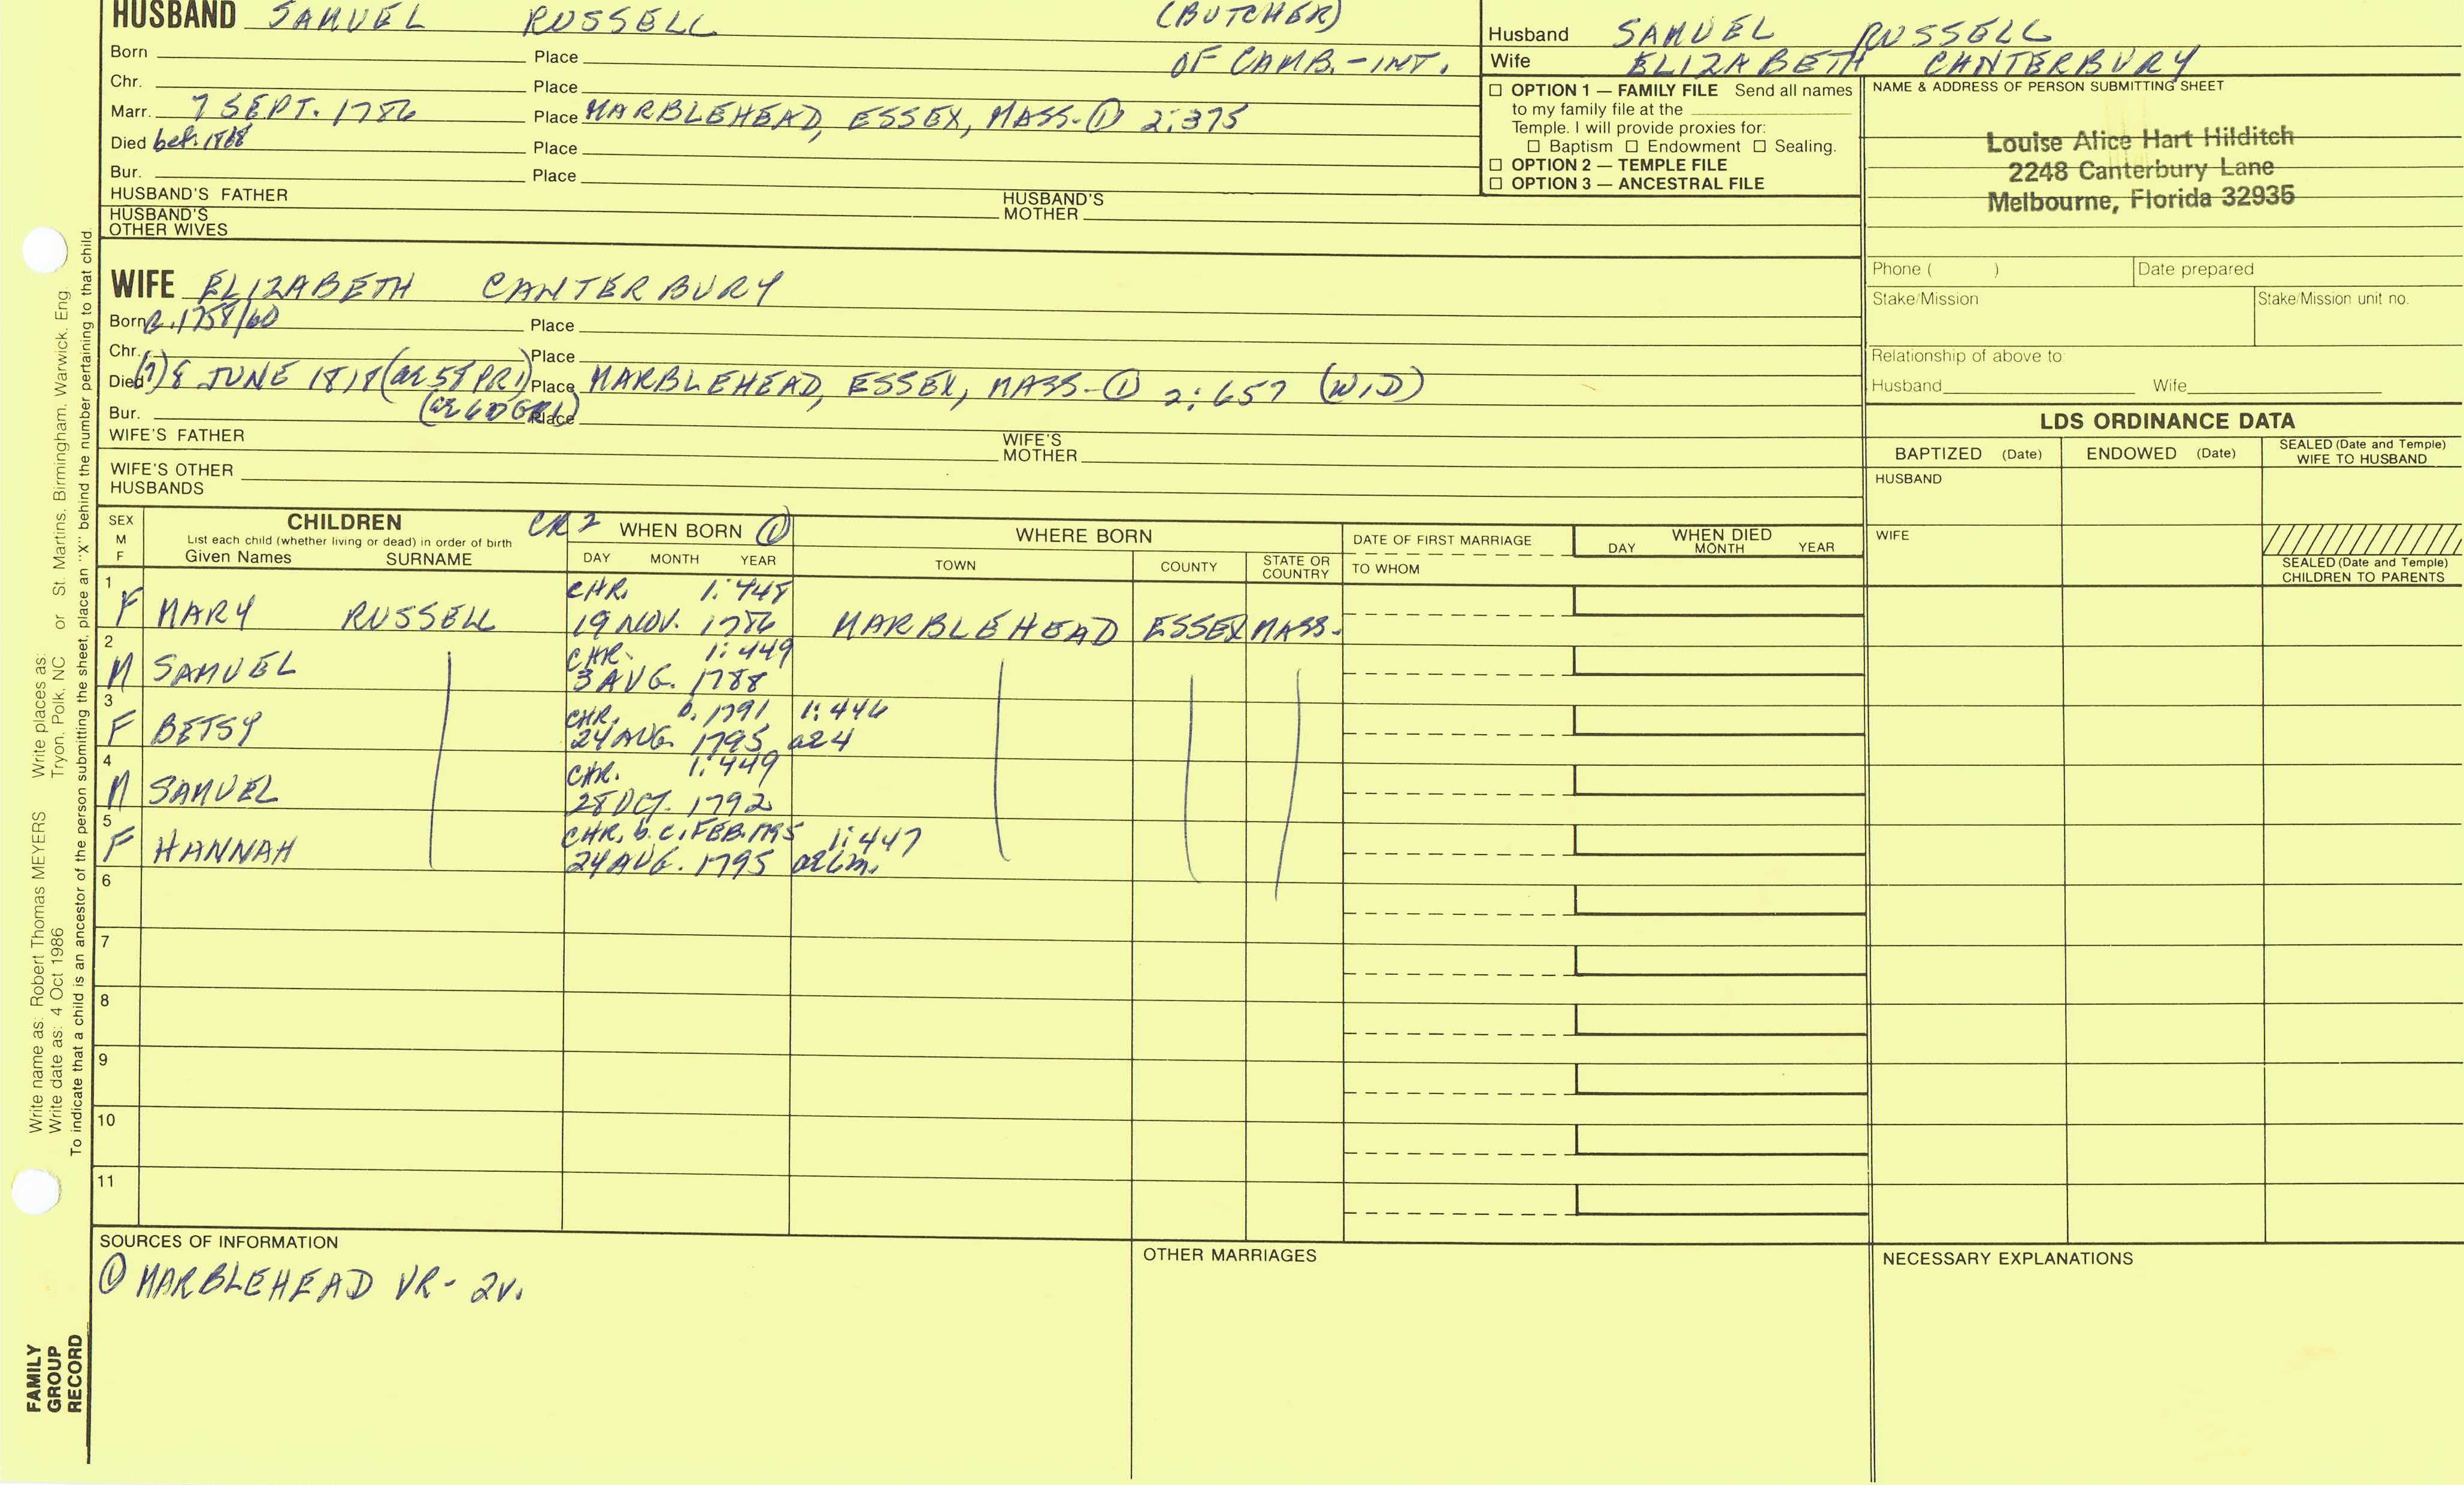 HUSBAND SAMUEL RUSSELL (BUTCHER)
Born Place OF CAMB.-INT.
Chr. Place
Marr. 7 SEPT. 1786 Place MARBLEHEAD, ESSEX, MASS-① 2:375
Died bef. 1818 Place
Bur. Place
HUSBAND'S FATHER HUSBAND'S MOTHER
HUSBAND'S OTHER WIVES
Husband SAMUEL RUSSELL
Wife ELIZABETH CANTERBURY
☐ OPTION 1 — FAMILY FILE Send all names
to my family file at the
Temple. I will provide proxies for:
☐ Baptism ☐ Endowment ☐ Sealing.
☐ OPTION 2 — TEMPLE FILE
☐ OPTION 3 — ANCESTRAL FILE
NAME & ADDRESS OF PERSON SUBMITTING SHEET
Louise Alice Hart Hilditch
2248 Canterbury Lane
Melbourne, Florida 32935
Phone ( ) Date prepared
Stake/Mission Stake/Mission unit no.
Relationship of above to:
Husband Wife
WIFE ELIZABETH CANTERBURY
Born c. 1758/60 Place
Chr. Place
Died (?) 8 JUNE 1818 (ae 58 PR1) Place MARBLEHEAD, ESSEX, MASS-① 2:657 (WID)
Bur. (ae 60 GR1) Place
WIFE'S FATHER WIFE'S MOTHER
WIFE'S OTHER HUSBANDS
LDS ORDINANCE DATA
BAPTIZED (Date) ENDOWED (Date) SEALED (Date and Temple) WIFE TO HUSBAND
HUSBAND
WIFE
SEALED (Date and Temple) CHILDREN TO PARENTS
SEX M F
CHILDREN
List each child (whether living or dead) in order of birth
Given Names SURNAME
CR2 WHEN BORN ①
DAY MONTH YEAR
WHERE BORN
TOWN COUNTY STATE OR COUNTRY
DATE OF FIRST MARRIAGE
TO WHOM
WHEN DIED
DAY MONTH YEAR
1 CHR. 1:448
F MARY RUSSELL 19 NOV. 1786 MARBLEHEAD ESSEX MASS.
2 CHR. 1:449
M SAMUEL 3 AUG. 1788
3 CHR. b. 1791 1:446
F BETSY 24 AUG. 1795 ae 4
4 CHR. 1:449
M SAMUEL 28 OCT. 1792
5 CHR. b. c. FEB. 1795 1:447
F HANNAH 24 AUG. 1795 ae 6m.
6
7
8
9
10
11
SOURCES OF INFORMATION
① MARBLEHEAD VR - 2v.
OTHER MARRIAGES
NECESSARY EXPLANATIONS
Write name as: Robert Thomas MEYERS Write places as: St. Martins, Birmingham, Warwick, Eng.
Write date as: 4 Oct 1986 Tryon, Polk, NC or
To indicate that a child is an ancestor of the person submitting the sheet, place an "X" behind the number pertaining to that child.
FAMILY
GROUP
RECORD